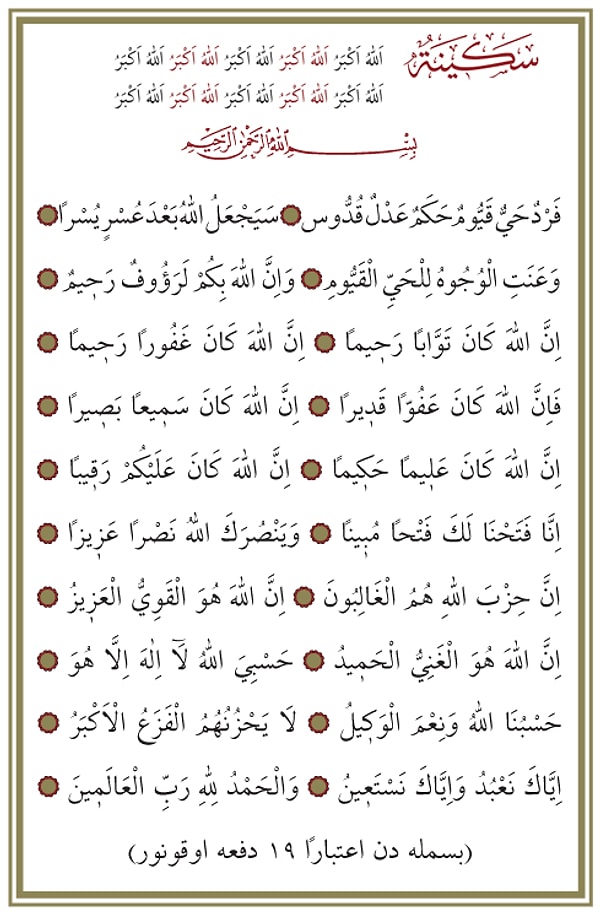 سَكِينَةٌ
اَللّٰهُ اَكْبَرُ اَللّٰهُ اَكْبَرُ اَللّٰهُ اَكْبَرُ اَللّٰهُ اَكْبَرُ اَللّٰهُ اَكْبَرُ
اَللّٰهُ اَكْبَرُ اَللّٰهُ اَكْبَرُ اَللّٰهُ اَكْبَرُ اَللّٰهُ اَكْبَرُ اَللّٰهُ اَكْبَرُ
بِسْمِ اللّٰهِ الرَّحْمٰنِ الرَّحِيمِ
فَرْدٌ حَيٌّ قَيُّومٌ حَكَمٌ عَدْلٌ قُدُّوس سَيَجْعَلُ اللّٰهُ بَعْدَ عُسْرٍ يُسْرًا
وَعَنَتِ الْوُجُوهُ لِلْحَيِّ الْقَيُّومِ وَاِنَّ اللّٰهَ بِكُمْ لَرَؤُوفٌ رَحِيمٌ
اِنَّ اللّٰهَ كَانَ تَوَّابًا رَحِيمًا اِنَّ اللّٰهَ كَانَ غَفُورًا رَحِيمًا
فَاِنَّ اللّٰهَ كَانَ عَفُوًّا قَدِيرًا اِنَّ اللّٰهَ كَانَ سَمِيعًا بَصِيرًا
اِنَّ اللّٰهَ كَانَ عَلِيمًا حَكِيمًا اِنَّ اللّٰهَ كَانَ عَلَيْكُمْ رَقِيبًا
اِنَّا فَتَحْنَا لَكَ فَتْحًا مُبِينًا وَيَنْصُرَكَ اللّٰهُ نَصْرًا عَزِيزًا
اِنَّ حِزْبَ اللّٰهِ هُمُ الْغَالِبُونَ اِنَّ اللّٰهَ هُوَ الْقَوِيُّ الْعَزِيزُ
اِنَّ اللّٰهَ هُوَ الْغَنِيُّ الْحَمِيدُ حَسْبِيَ اللّٰهُ لَٓا اِلٰهَ اِلَّا هُوَ
حَسْبُنَا اللّٰهُ وَنِعْمَ الْوَكِيلُ لَا يَحْزُنُهُمُ الْفَزَعُ الْاَكْبَرُ
اِيَّاكَ نَعْبُدُ وَاِيَّاكَ نَسْتَعِينُ وَالْحَمْدُ لِلّٰهِ رَبِّ الْعَالَمِينَ
(بسمله دن اعتبارًا ١٩ دفعه اوقونور)